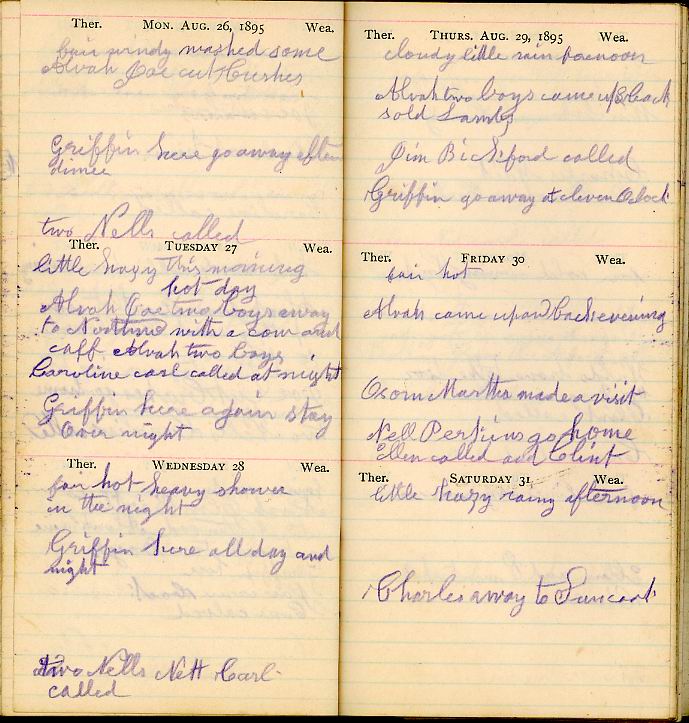 Ther. MON. AUG. 26, 1895 Wea.
fair windy washed some
Alvah Joe cut Bushes
Griffin here go away after
dinner
two Nells called
Ther. TUESDAY 27 Wea.
little hazy this morning
hot day
Alvah Joe two boys away
to with a cow and
caff Alvah two boys
Caroline carl called at night
Griffin here again stay
over night
Ther. WEDNESDAY 28 Wea.
fair hot heavy shower
in the night
Griffin here all day and
night
two Nells Nett Carl
called
Ther. THURS. AUG. 29, 1895 Wea.
cloudy little rain foenoon
Alvah two boys came up & back
sold Lambs
Jim Bickford called
Griffin go away at eleven Oclock
Ther. FRIDAY 30 Wea.
fair hot
Alvah came up and back evening
Martha made a visit
Nell Perkins go home
Ellen called and Clint
Ther. SATURDAY 31 Wea.
little hazy rainy afternoon
Charles away to